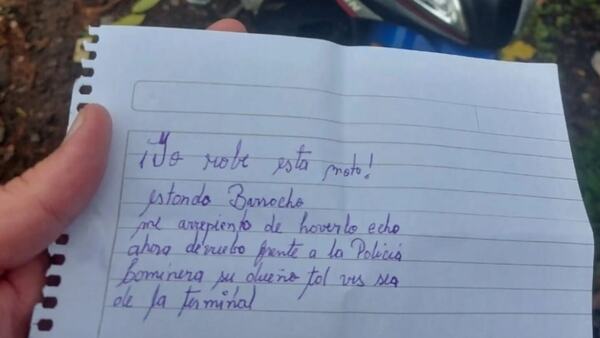 ¡Yo robe esta moto!
estando Borrocho
me arrepiento de hoverlo echo
ahora devuelbo frente a la Policia
Cominera su dueño tol ves sea
de la terminal